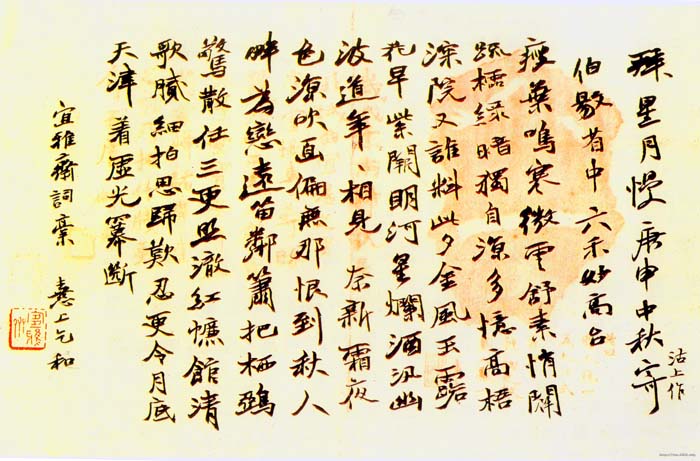 拜星月慢 庚申中秋寄
沽上作
伯敭省中 六禾妙高台
葉鳴寒微雲舒素悄闢
疏櫺綠暗獨自涼多憶高梧
深院又誰料此夕金風玉露
早紫闕明河星爛酒汎幽
波道年、相見 奈新霜夜
色涼吹直偏無那恨到秋人
畔為戀遠笛鄰簫把栖鴉
驚散任三更照澈紅幰館清
歌膩細拍思歸歎忍更令月底
天津着虛光冪斷
宜雅齋詞稾 上乞和